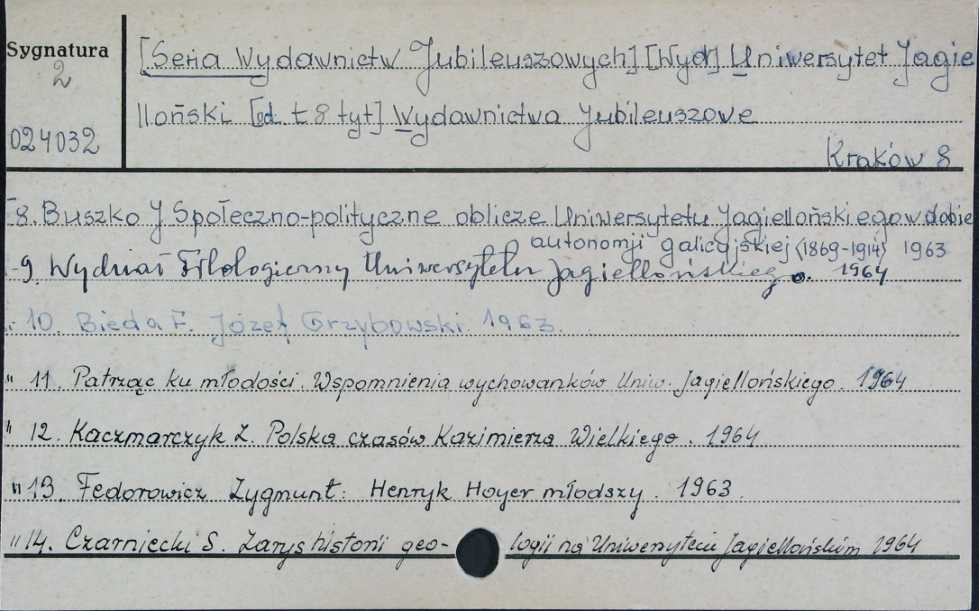 Sygnatura
2
024032
[Seria Wydawnictw Jubileuszowych] [Wyd] Uniwersytet Jagie
lloński [od t 8 tyt] Wydawnictwa Jubileuszowe
Kraków 8
8. Buszko J Społeczno-polityczne oblicze Uniwersytetu Jagiellońskiego w dobie
autonomji galicyjskiej (1869-1914) 1963
9. Wydział Filologiczny Uniwersytetu Jagiellońskiego. 1964
" 10. Bieda F. Józef Grzybowski 1963.
" 11. Patrząc ku młodości. Wspomnienia wychowanków Uniw. Jagiellońskiego. 1964
" 12. Kaczmarczyk Z. Polska czasów Kazimierza Wielkiego. 1964
" 13. Fedorowicz Zygmunt: Henryk Hoyer młodszy. 1963.
" 14. Czarniecki S. Zarys historii geo- logii na Uniwersytecie Jagiellońskim 1964